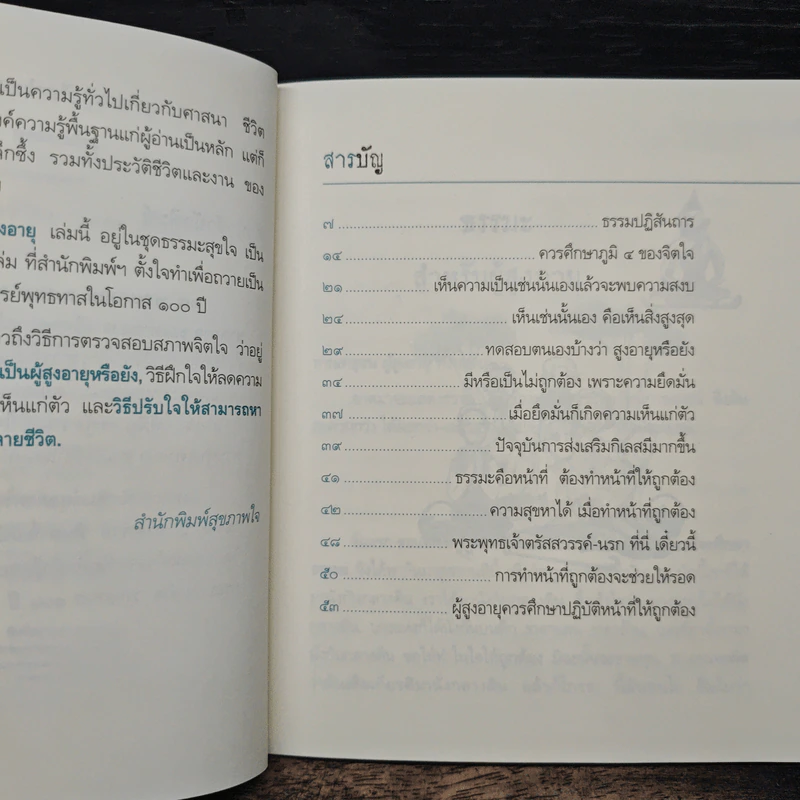 เป็นความรู้ทั่วไปเกี่ยวกับศาสนา ชีวิต
ค์ความรู้พื้นฐานแก่ผู้อ่านเป็นหลัก แต่ก็
ลึกซึ้ง รวมทั้งประวัติชีวิตและงาน ของ
สูงอายุ เล่มนี้ อยู่ในชุดธรรมะสุขใจ เป็น
ล่ม ที่สำนักพิมพ์ฯ ตั้งใจทำเพื่อถวายเป็น
รย์พุทธทาสในโอกาส ๑๐๐ ปี
วถึงวิธีการตรวจสอบสภาพจิตใจ ว่าอยู่
เป็นผู้สูงอายุหรือยัง, วิธีฝึกใจให้ลดความ
ห็นแก่ตัว และวิธีปรับใจให้สามารถหา
ลายชีวิต.
สำนักพิมพ์สุขภาพใจ
สารบัญ
๗ ธรรมปฏิสันถาร
๑๔ ควรศึกษาภูมิ ๔ ของจิตใจ
๒๑ เห็นความเป็นเช่นนั้นเองแล้วจะพบความสงบ
๒๔ เห็นเช่นนั้นเอง คือเห็นสิ่งสูงสุด
๒๙ ทดสอบตนเองบ้างว่า สูงอายุหรือยัง
๓๔ มีหรือเป็นไม่ถูกต้อง เพราะความยึดมั่น
๓๗ เมื่อยึดมั่นก็เกิดความเห็นแก่ตัว
๓๙ ปัจจุบันการส่งเสริมกิเลสมีมากขึ้น
๔๑ ธรรมะคือหน้าที่ ต้องทำหน้าที่ให้ถูกต้อง
๔๒ ความสุขหาได้ เมื่อทำหน้าที่ถูกต้อง
๔๘ พระพุทธเจ้าตรัสสวรรค์-นรก ที่นี่ เดี๋ยวนี้
๕๐ การทำหน้าที่ถูกต้องจะช่วยให้รอด
๕๓ ผู้สูงอายุควรศึกษาปฏิบัติหน้าที่ให้ถูกต้อง